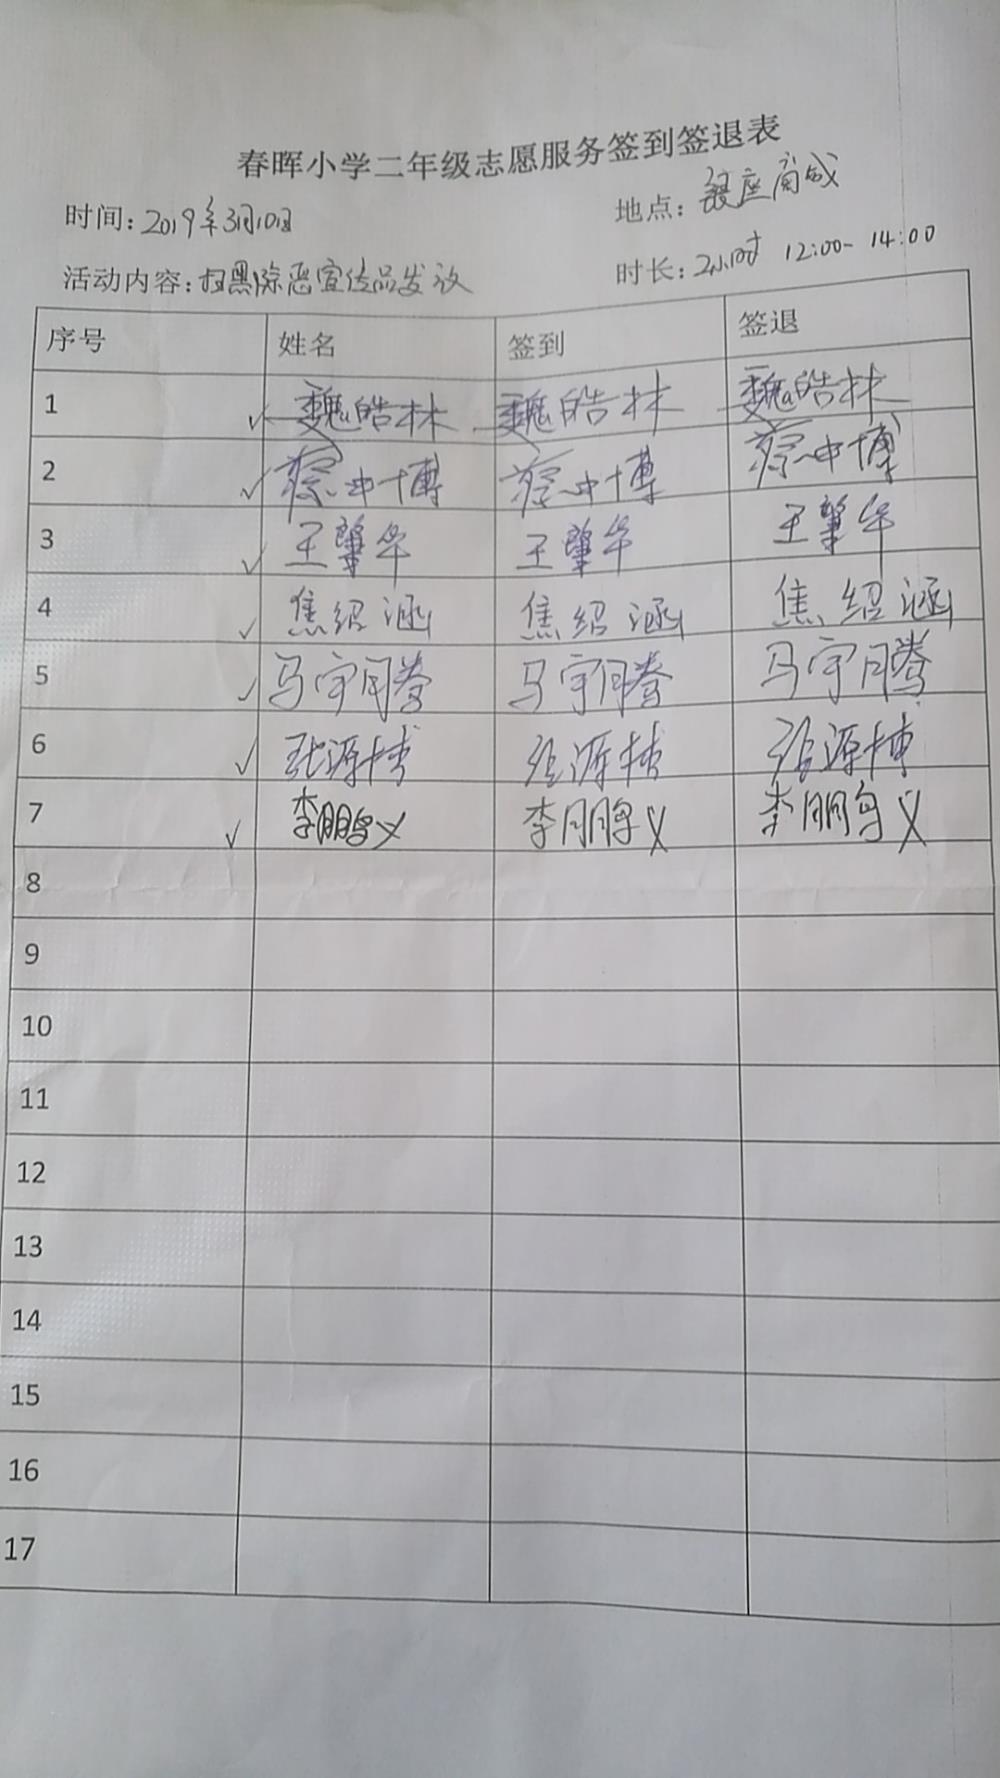 春晖小学二年级志愿服务签到签退表
时间：2019年3月10日 地点：银座商城
活动内容：扫黑除恶宣传品发放 时长：2小时 12:00-14:00
序号 姓名 签到 签退
1 ✓ 魏皓林 魏皓林 魏皓林
2 ✓ 蔡中博 蔡中博 蔡中博
3 ✓ 王肇华 王肇华 王肇华
4 ✓ 焦绍涵 焦绍涵 焦绍涵
5 ✓ 马宇腾 马宇腾 马宇腾
6 ✓ 张源博 张源博 张源博
7 ✓ 李鹏义 李鹏义 李鹏义
8
9
10
11
12
13
14
15
16
17